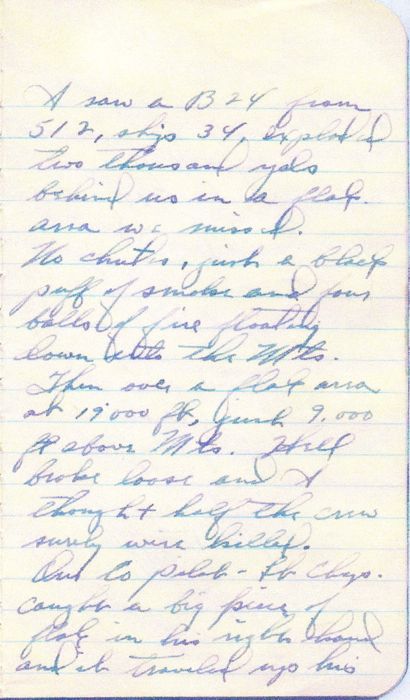 I saw a B24 from
512, ship 34, explod
two thousand yds
behind us in a flak
area we missed.
No chutes, just a black
puff of smoke and four
balls of fire floating
down into the Mts.
Then over a flak area
at 19000 ft, just 9.000
ft above Mts. Hell
broke loose and I
thought half the crew
surely were killed.
Our Co pilot - Lt
caught a big piece of
flak in his right hand
and it traveled up his